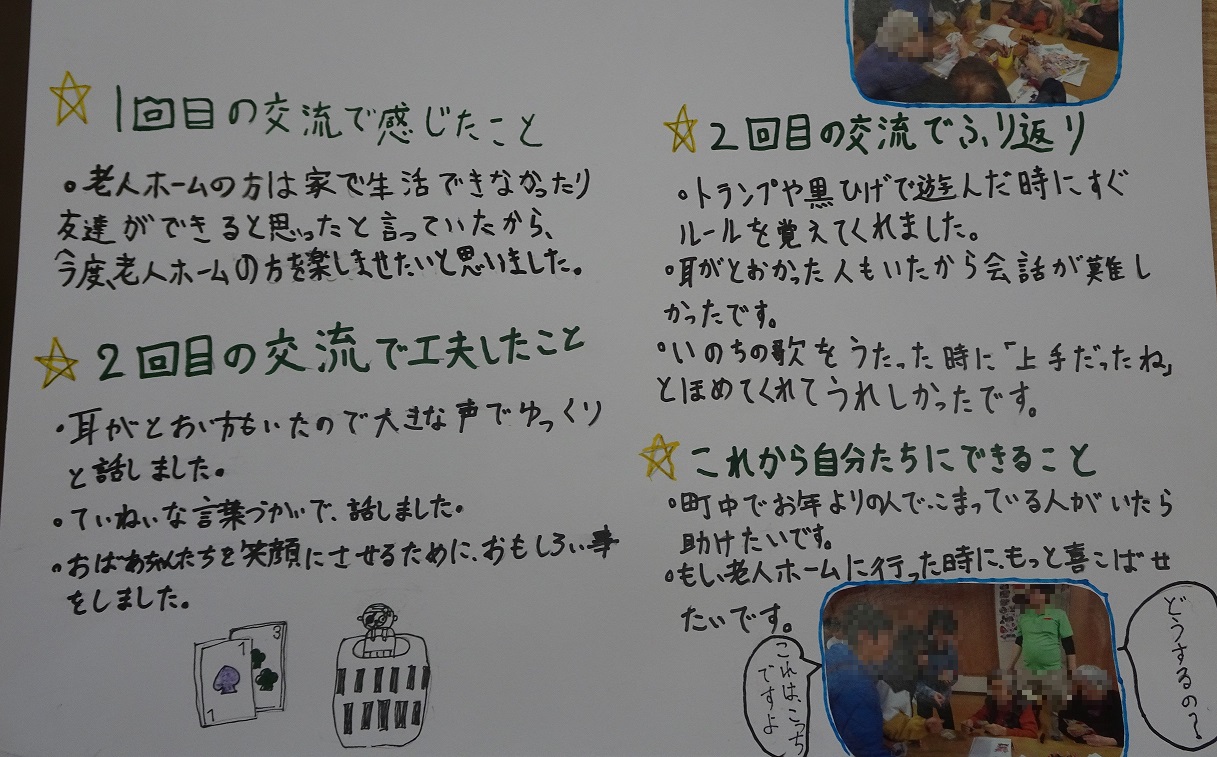 1回目の交流で感じたこと
。老人ホームの方は家で生活できなかったり
友達ができると思ったと言っていたから、
今度、老人ホームの方を楽しませたいと思いました。
2回目の交流で工夫したこと
・耳がとおい方もいたので大きな声でゆっくり
と話しました。
・ていねいな言葉づかいで、話しました。
・おばあちゃんたちを笑顔にさせるために、おもしろい事
をしました。
1
1
3
2回目の交流でふり返り
。トランプや黒ひげで遊んだ時にすぐ
ルールを覚えてくれました。
・耳がとおかった人もいたから会話が難し
かったです。
・いのちの歌をうたった時に「上手だったね」
とほめてくれてうれしかったです。
これから自分たちにできること
・町中でお年よりの人で、こまっている人がいたら
助けたいです。
・もし、老人ホームに行った時に、もっと喜こばせ
たいです。
これは、こっち
ですよ
どうするの?